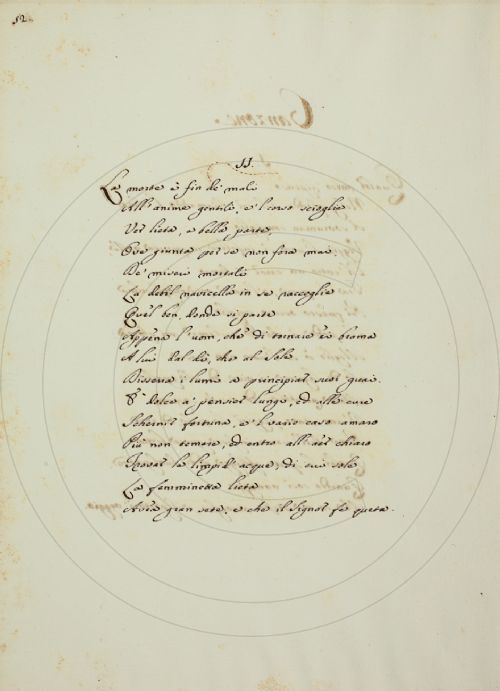 52.
II.
La morte è fin de' mali
All' anime gentili, e 'l corso scioglie
Ver lieta, e bella parte,
Ove giunta per se non fora mai
De' miseri mortali
La debil navicella in se raccoglie
Quel ben, donde si parte
Appena l'uom, che di tornare in brama
A lui dal dì, che al Sole
Disserra i lumi a principiar suoi guai.
È dolce a' pensier lunghi, ed alle cure
Schernir fortuna, e 'l vario caso amaro
Più non temere, ed entro all' aer chiaro
Trovar le limpid' acque, di cui sole
La femminetta lieta
Avea gran sete, e che il Signor fe' queta.